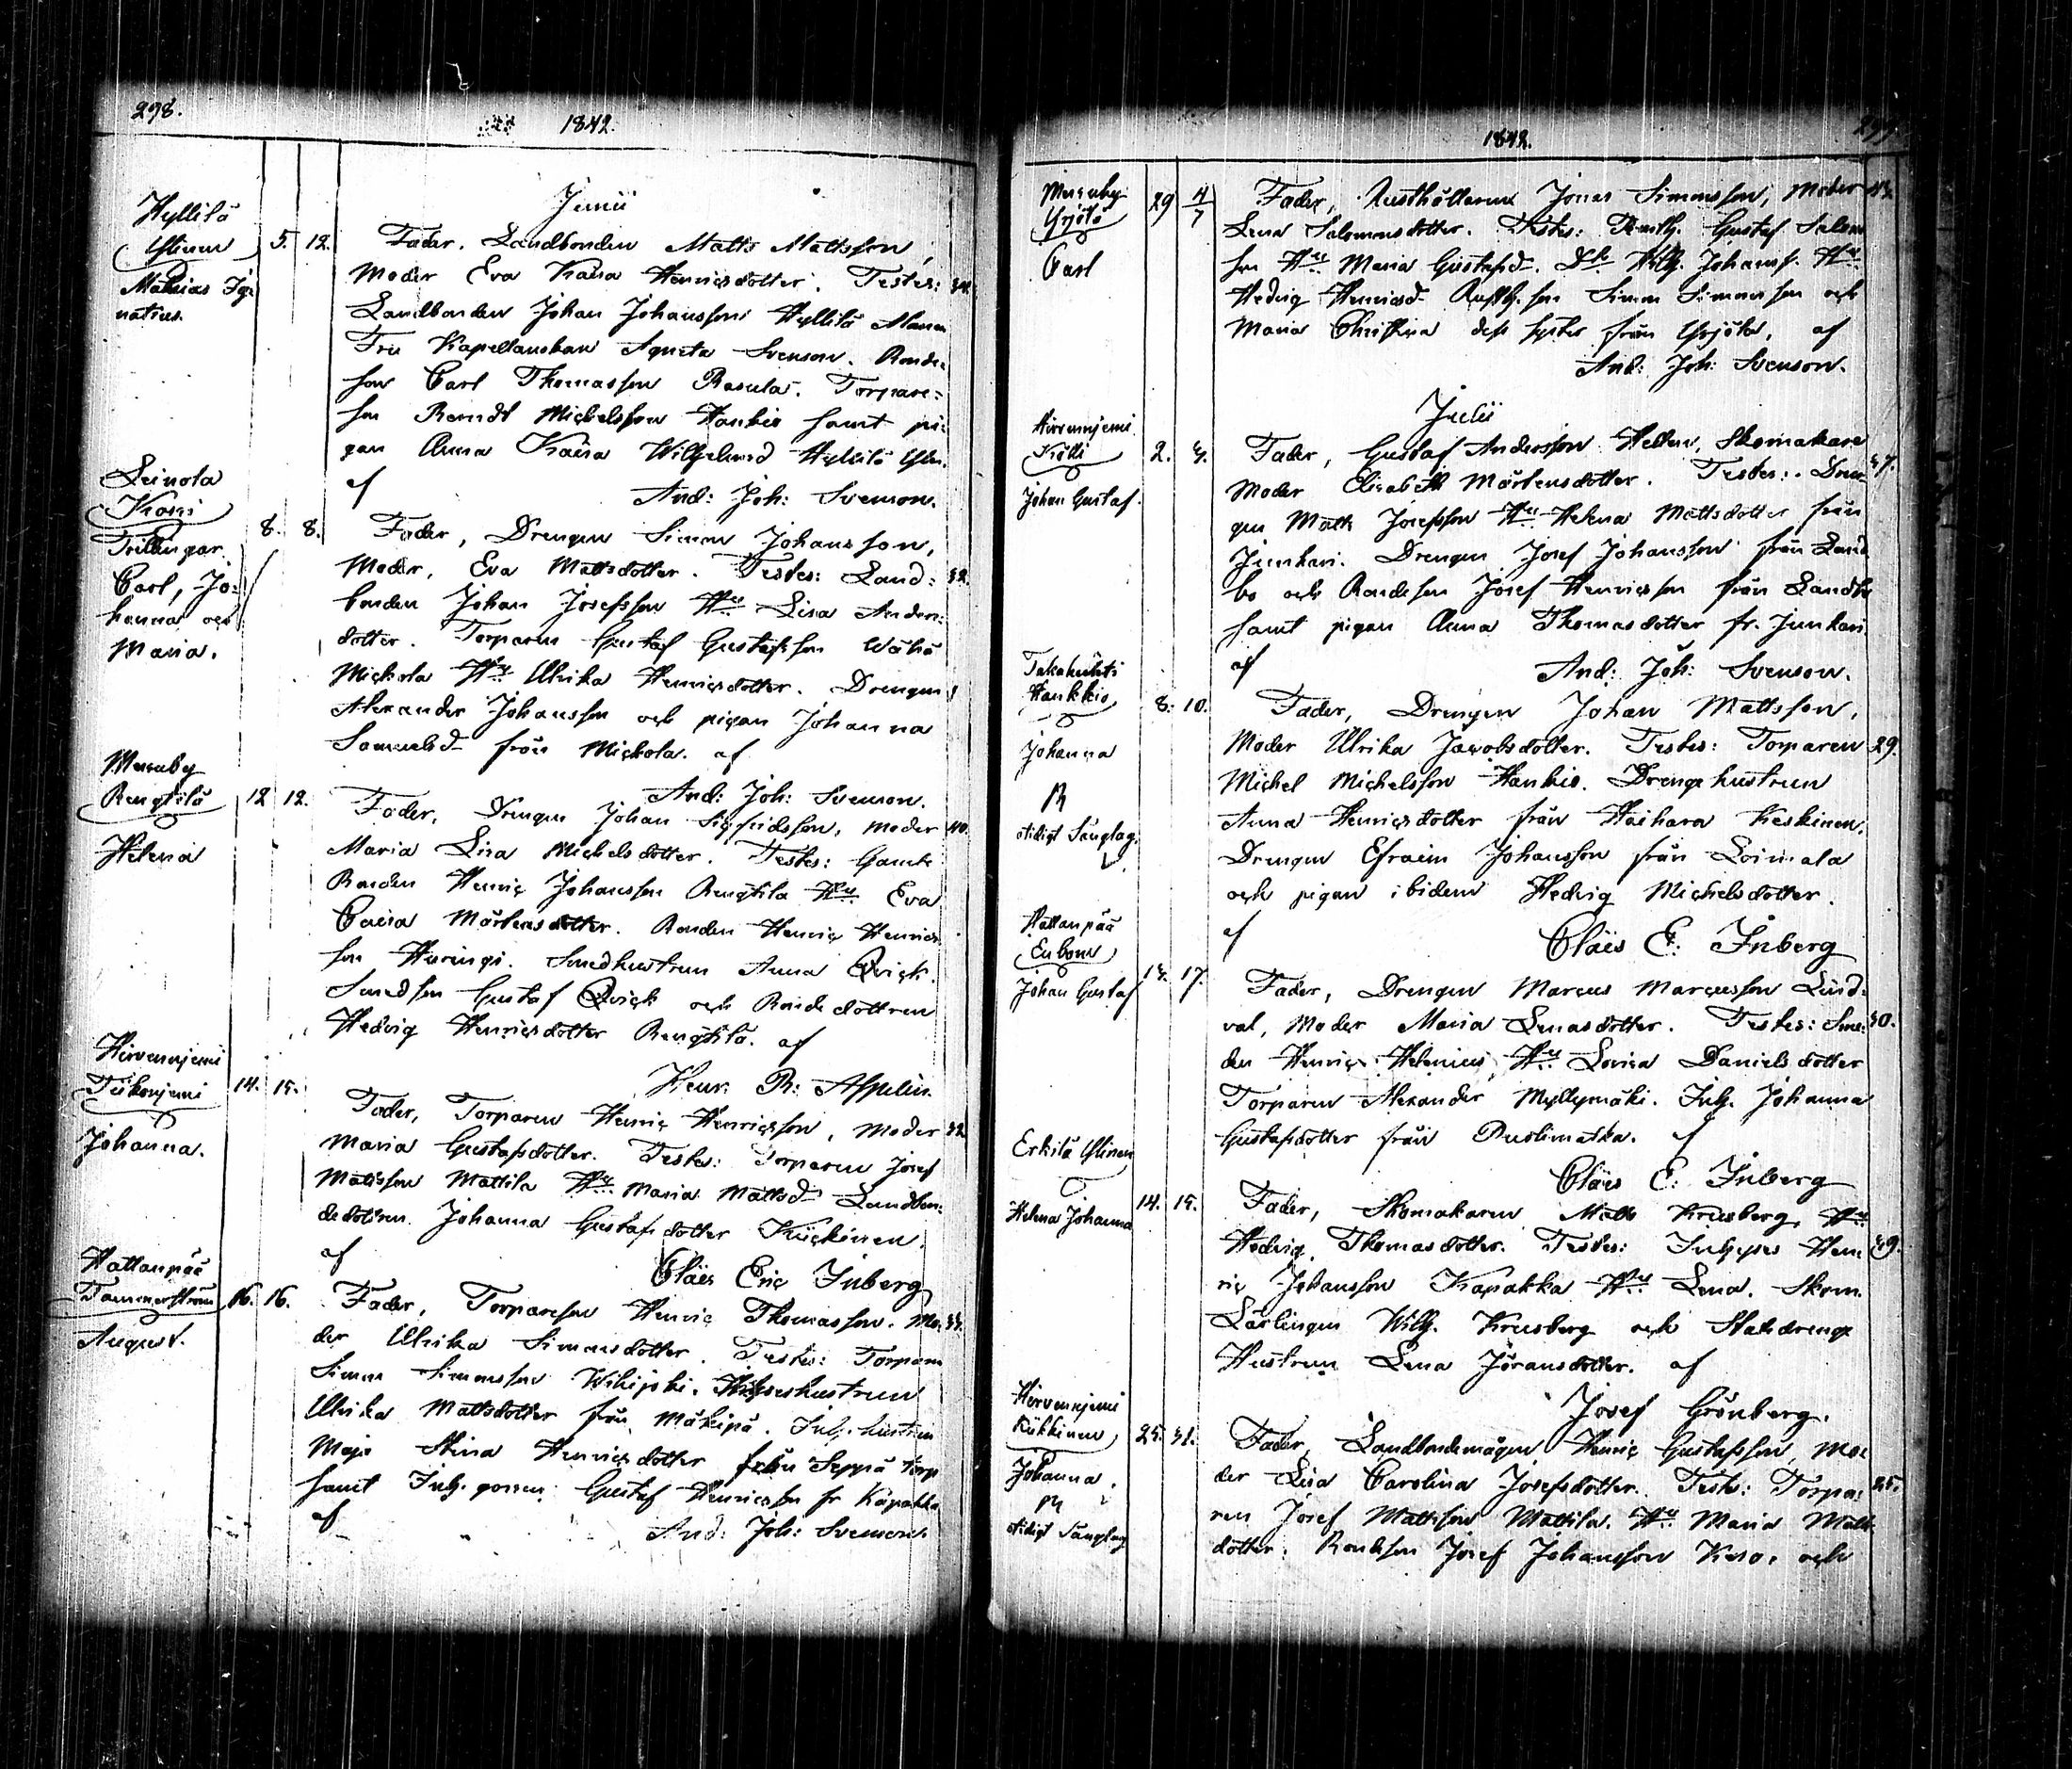 298.
1842.
Junii
Hyllilä
Ylinen
5. 12.
Mathias Ig-
natius.
Fader, Landbonden Matts Mattsson,
Moder Eva Kaisa Henricsdotter. Testes:
Landbonden Johan Johansson Hyllilä Alanen
Fru Kapellanskan Agneta Svenson. Bonde-
son Carl Thomasson Rasula. Torpare-
son Berndt Michelsson Hankio samt pi-
gan Anna Kaisa Wilhelmsd Hyllilä Ylin.
af
And: Joh: Svenson.
Leinola
Krori
8. 8.
Trillingar
Carl, Jo-
hanna och
Maria.
Fader, Drengen Simon Johansson,
Moder, Eva Mattsdotter. Testes: Land- 32.
bonden Johan Josefsson Hu Lisa Anders-
dotter. Torparen Gustaf Gustafsson Wähä
Mickola Hu Ulrika Henricsdotter. Drengen
Alexander Johansson och pigan Johanna
Samuelsd från Mickola. af
And: Joh: Svenson.
Messuby
Rengtilä
12 12.
Helena
Fader, Drengen Johan Sigfridsson, Moder 40.
Maria Lisa Michelsdotter. Testes: Gamle
Bonden Henric Johansson Rengtilä Hu Eva
Caisa Mårtensdotter. Bonden Henric Henrics
son Hirvingi. Smedhustrun Anna Qvick.
Smedson Gustaf Qvick och Bondedottren
Hedvig Henricsdotter Rengtilä. af
Henr. R: Aspelin.
Hirvennjemi
Tiikonjemi
14. 15.
Johanna.
Fader, Torparen Henric Henricsson, Moder 32
Maria Gustafsdotter. Testes: Torparen Josef
Mattsson Mattila Hu Maria Mattsd Landbon-
dedottren Johanna Gustafsdotter Kückinen.
af
Claës Eric Inberg
Hattanpää
Tammerström
16. 16.
August.
Fader, Torpareson Henric Thomasson. Mo- 33.
der Ulrika Simonsdotter. Testes: Torparen
Simon Simonsson Wihijoki.
Ulrika Mattsdotter från Mäkipä. Inh. hustrun
Maja Stina Henricsdotter från Seppä torp
samt Inh. gossen Gustaf Henricsson fr Kapakka
af
And: Joh: Svenson.
299
1842.
Messuby
Yrjölä
29 4/7
Carl
Fader, Rusthållaren Jonas Simonsson, Moder 43.
Lena Salomonsdotter. Testes: Rusth. Gustaf Salom
son Hu Maria Gustafsd. Do Wilh. Johanss. Hu
Hedvig Henricsd Rusth. son Simon Simonsson och
Maria Christina dess syster från Yrjölä. af
And: Joh: Svenson.
Julii
Hirvennjemi
Kölli
2. 3.
Johan Gustaf.
Fader, Gustaf Andersson Hellen, Skomakare
Moder Elisabeth Mårtensdotter. Testes: Dren- 37.
gen Matts Josefsson Hu Helena Mattsdotter från
Junkari. Drengen Josef Johansson från Land
bo och Bondeson Josef Henricsson från Landbo
samt pigan Anna Thomasdotter fr. Junkari
af
And: Joh: Svenson.
Takahuhti
Hankkio
8. 10.
Johanna
oächt Sänglag.
Fader, Drengen Johan Mattsson,
Moder Ulrika Jacobsdotter. Testes: Torparen 29.
Michel Michelsson Hankio. Drengehustrun
Anna Henricsdotter från Haihara Keskinen,
Drengen Efraim Johansson från Loimala
och pigan ibidem Hedvig Michelsdotter.
af
Claës E: Inberg
Hattanpää
Enbom
13. 17.
Johan Gustaf
Fader, Drengen Marcus Marcusson Lind-
val, Moder Maria Lenasdotter. Testes: Sme- 30.
den Henric Helenius, Hu Lovisa Danielsdotter
Torparen Alexander Myllymäki. Inh. Johanna
Gustafsdotter från Rustimatka. af
Claës E: Inberg
Erkilä Ylinen
14. 15.
Helena Johanna
Fader, Skomakaren Matts Krusberg, Hu
Hedvig Thomasdotter. Testes: Inhyses Hen- 29.
ric Johansson Kapakka Hu Lena. Skom.
Lärlingen Wilh. Krusberg och Statdrengs
Hustrun Lena Jöransdotter. af
Josef Grönberg.
Hirvennjemi
Kükkinen
25. 31.
Johanna.
Fader, Landbondemågen Henric Gustafsson, Mo-
der Lisa Carolina Josefsdotter. Testes: Torpa- 25.
ren Josef Mattsson Mattila. Hu Maria Matts
dotter. Bondeson Josef Johansson Karo, och